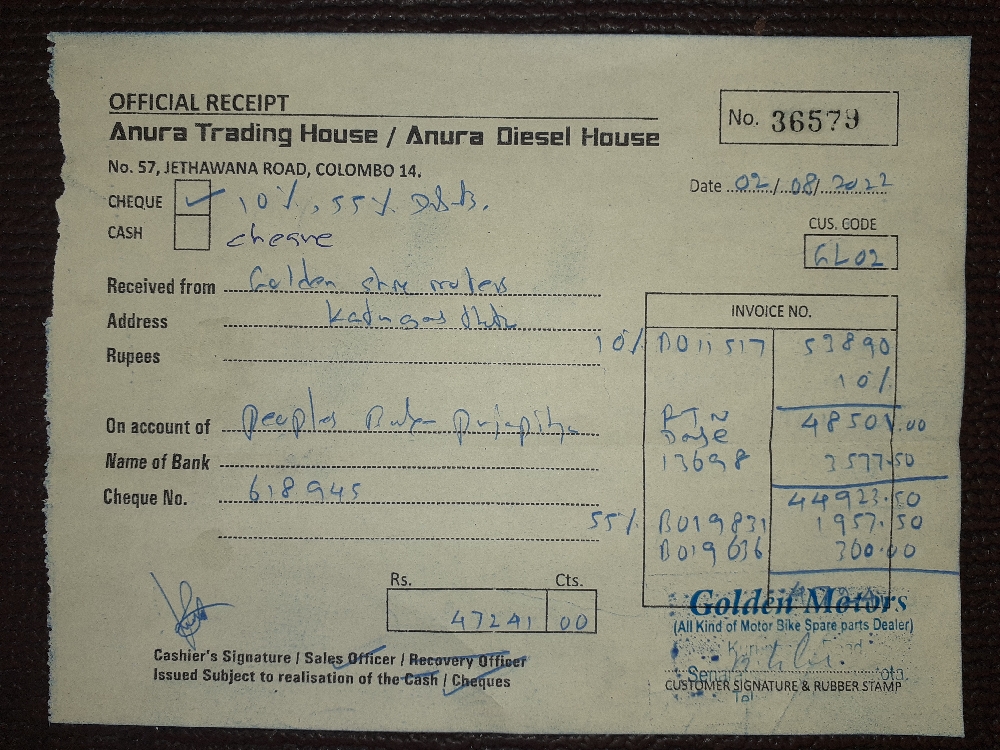 OFFICIAL RECEIPT
Anura Trading House / Anura Diesel House
No. 36579
No. 57, JETHAWANA ROAD, COLOMBO 14.
Date 02/08/2022
CHEQUE 10%, 55%
CASH cheque
CUS. CODE
GL02
Received from Golden
Address
Rupees
INVOICE NO.
10% B011517 53890
10%
48501.00
On account of Peoples
13698 3577.50
Name of Bank
44923.50
Cheque No. 618945
55% B019831 1957.50
B019636 360.00
Rs. Cts.
47241 00
Golden Motors
(All Kind of Motor Bike Spare parts Dealer)
Cashier's Signature / Sales Officer / Recovery Officer
Issued Subject to realisation of the Cash / Cheques
CUSTOMER SIGNATURE & RUBBER STAMP